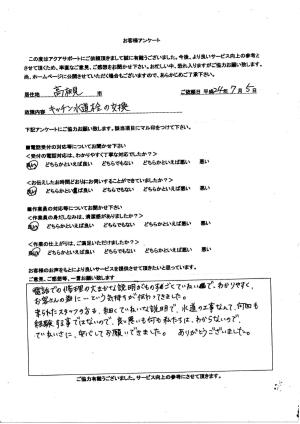 お客様アンケート
この度はアクアサポートにご依頼頂きまして誠に有難うございました。今後、より良いサービス向上の参考と
させて頂くため、率直なご意見、ご感想をお聞かせ下さい。お忙しい中、恐れ入りますがご協力お願い致します。
尚、ホームページに公開させていただく場合もございますので、あらかじめご了承下さい。
居住地 高槻 市 ご依頼日 平成24年7月5日
依頼内容 キッチン水道栓の交換
下記アンケートにご協力お願い致します。該当項目にマル印をつけて下さい。
■電話受付の対応等についてお聞かせ下さい
<受付の電話対応は、わかりやすく丁寧な対応でしたか?>
良い どちらかといえば良い どちらでもない どちらかといえば悪い 悪い
<お伝えしたお時間どおりにお伺いすることができていましたか?>
良い どちらかといえば良い どちらでもない どちらかといえば悪い 悪い
■作業員の対応等についてお聞かせ下さい
<作業員の身だしなみは、清潔感がありましたか?>
良い どちらかといえば良い どちらでもない どちらかといえば悪い 悪い
<作業の仕上がりは、ご満足いただけましたか?>
良い どちらかといえば良い どちらでもない どちらかといえば悪い 悪い
お客様のお声をもとにより良いサービスを提供させて頂きたいと思っています。
ご意見、ご感想等、一言お願い致します
電話での修理の大まかな説明がとてもていねいで、わかりやすく、
お客さんの為に…という気持ちが伝わってきました。
来られたスタッフの方も、細くていねいな説明で、水道の工事なんて、何回も
経験する事ではないので、良い悪いも何も私たちは、わからないので、
ていねいさに、安心してお願いできました。ありがとうございました。
ご協力有難うございました。サービス向上の参考にさせて頂きます。